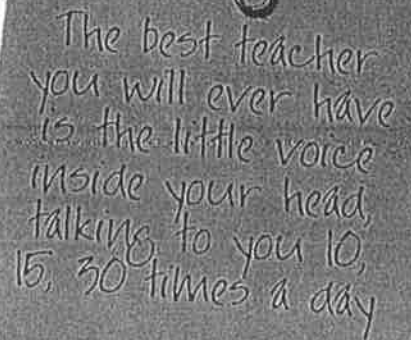 The best teacher
you will ever have
is the little voice
inside your head,
talking to you 10,
15, 30 times a day